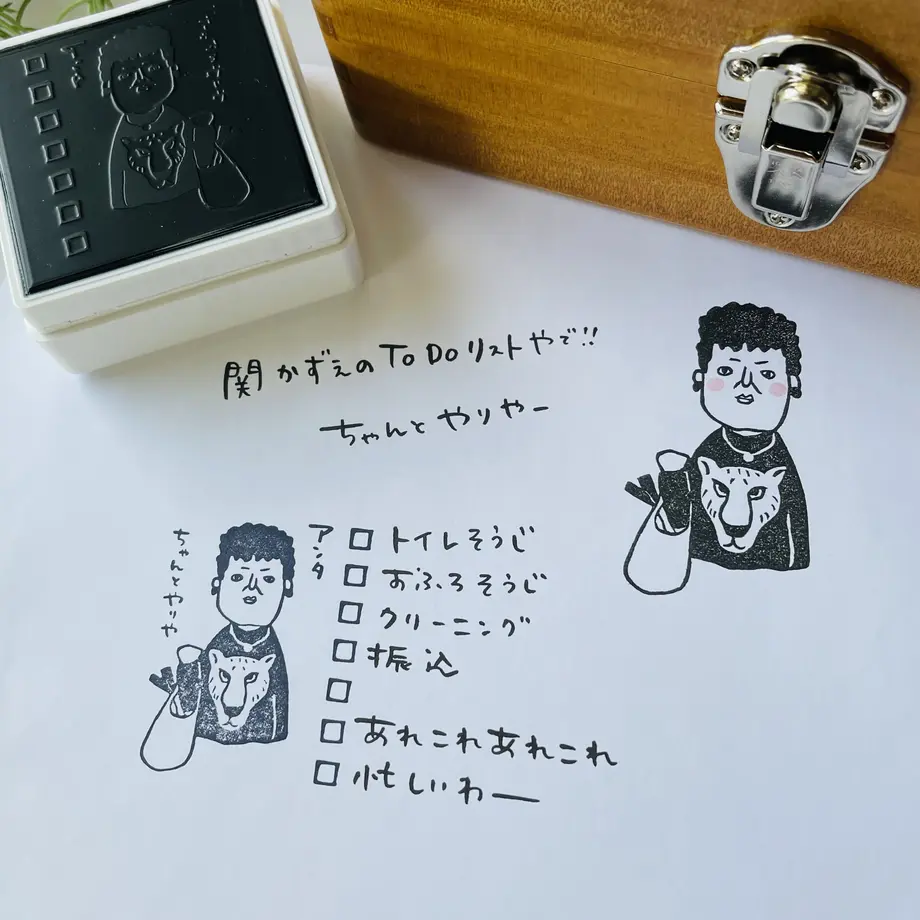 関かずえのTo Doリストやで!!
ちゃんとやりやー
アンタ
ちゃんとやりや
トイレそうじ
おふろそうじ
クリーニング
振込
あれこれあれこれ
忙しいわー